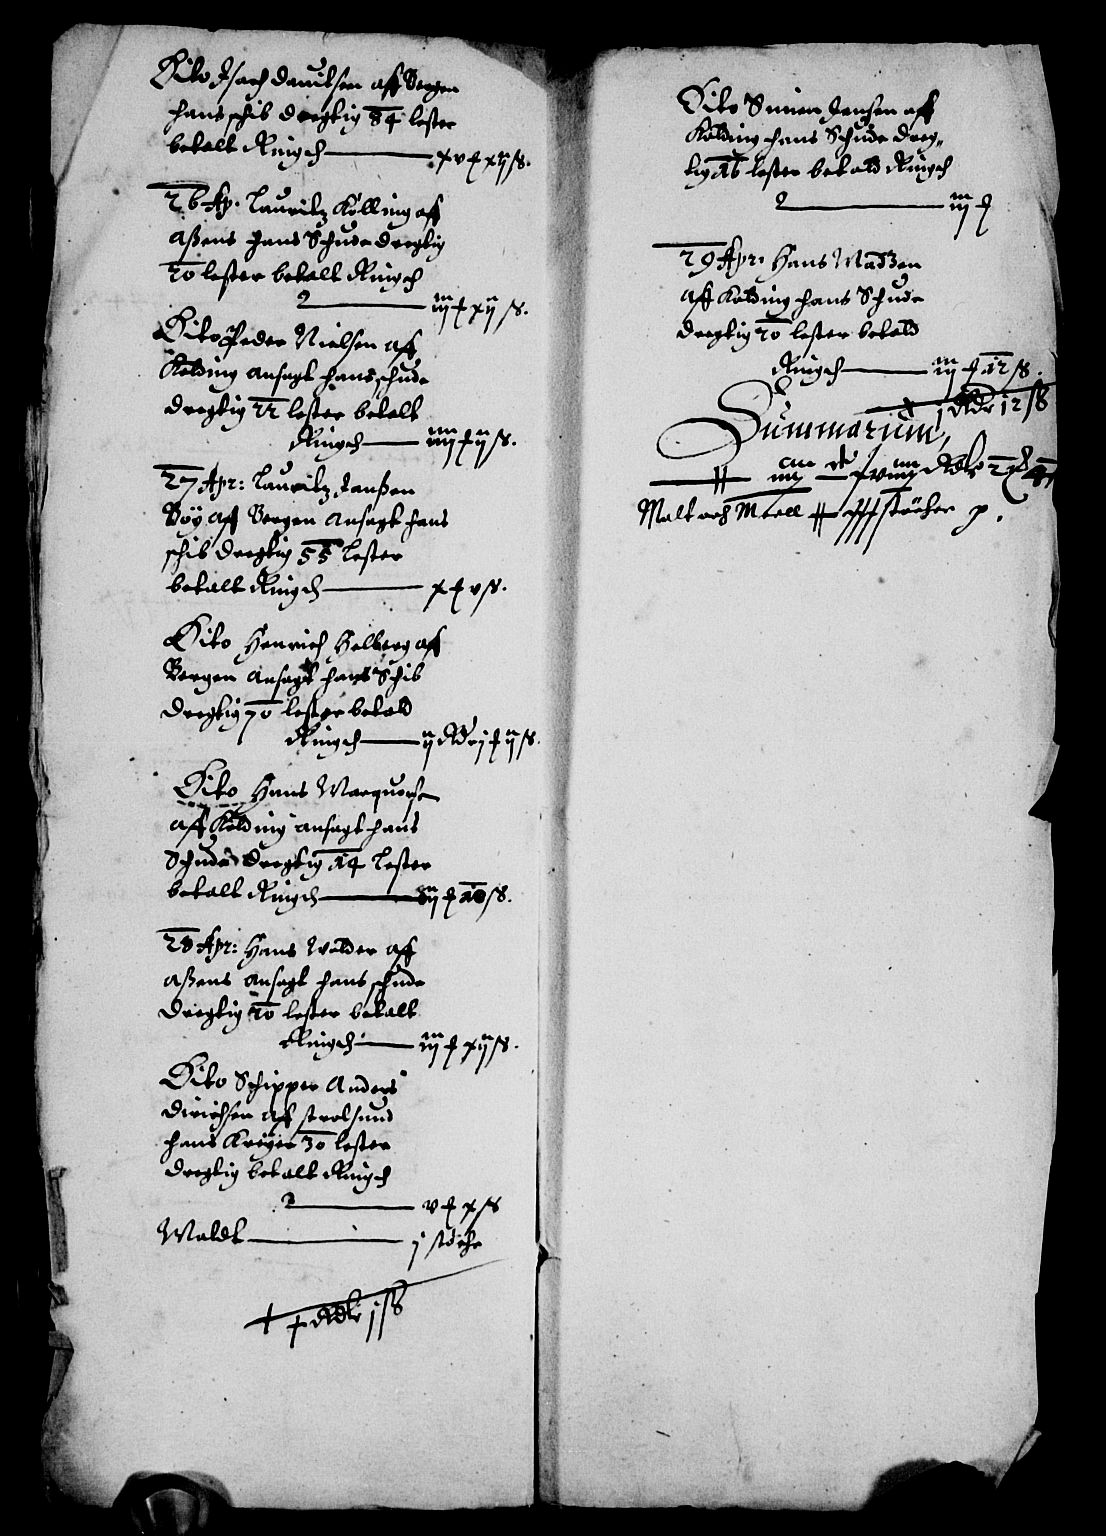 Dito Isach Dauitsen aff Bergen
hans schib dregtig 84 lester
betalt Ringsch xv ʄ xij ß.
26 Ap. Lauritz Kölling aff
Aßens hans Schude dregtig
20 lester betalt Ringsch
iij ʄ xij ß.
Dito Peder Nielsen aff
Kolding ansagt hans schude
dregtig 22 lester betalt
Ringsch iiij ʄ ij ß.
27 Apr: Lauritz Janßen
Böÿ aff Bergen ansagt hans
schib dregtig 55 lester
betalt Ringsch x ʄ v ß.
Dito Henrich Helberg aff
Bergen ansagt hans Schib
dregtig 70 lester betald
Ringsch ij Rdr j ʄ ij ß.
Dito Hans Marquorß
aff Kolding ansagt hans
Schude dregtig 14 lester
betalt Ringsch ij ʄ 10 ß.
28 Apr: Hans Wolder aff
Aßens ansagt hans schude
dregtig 20 lester betalt
Ringsch iij ʄ xij ß.
Dito Schipper Anders
Dirichsen aff stralsund
hans Kreÿer 30 lester
dregtig betalt Ringsch
v ʄ x ß
Maldt j störche
Rdr j ß
Dito Simen Jensen aff
Kolding hans Schude dreg-
tig 16 lester betald Ringsch
iij ʄ
29 Apr: Hans Madßen
aff Kolding hans Schude
dregtig 20 lester betald
Ringsch iij ʄ 12 ß.
j Rdr 12 ß
Summarium,
Malt och Meell störcher